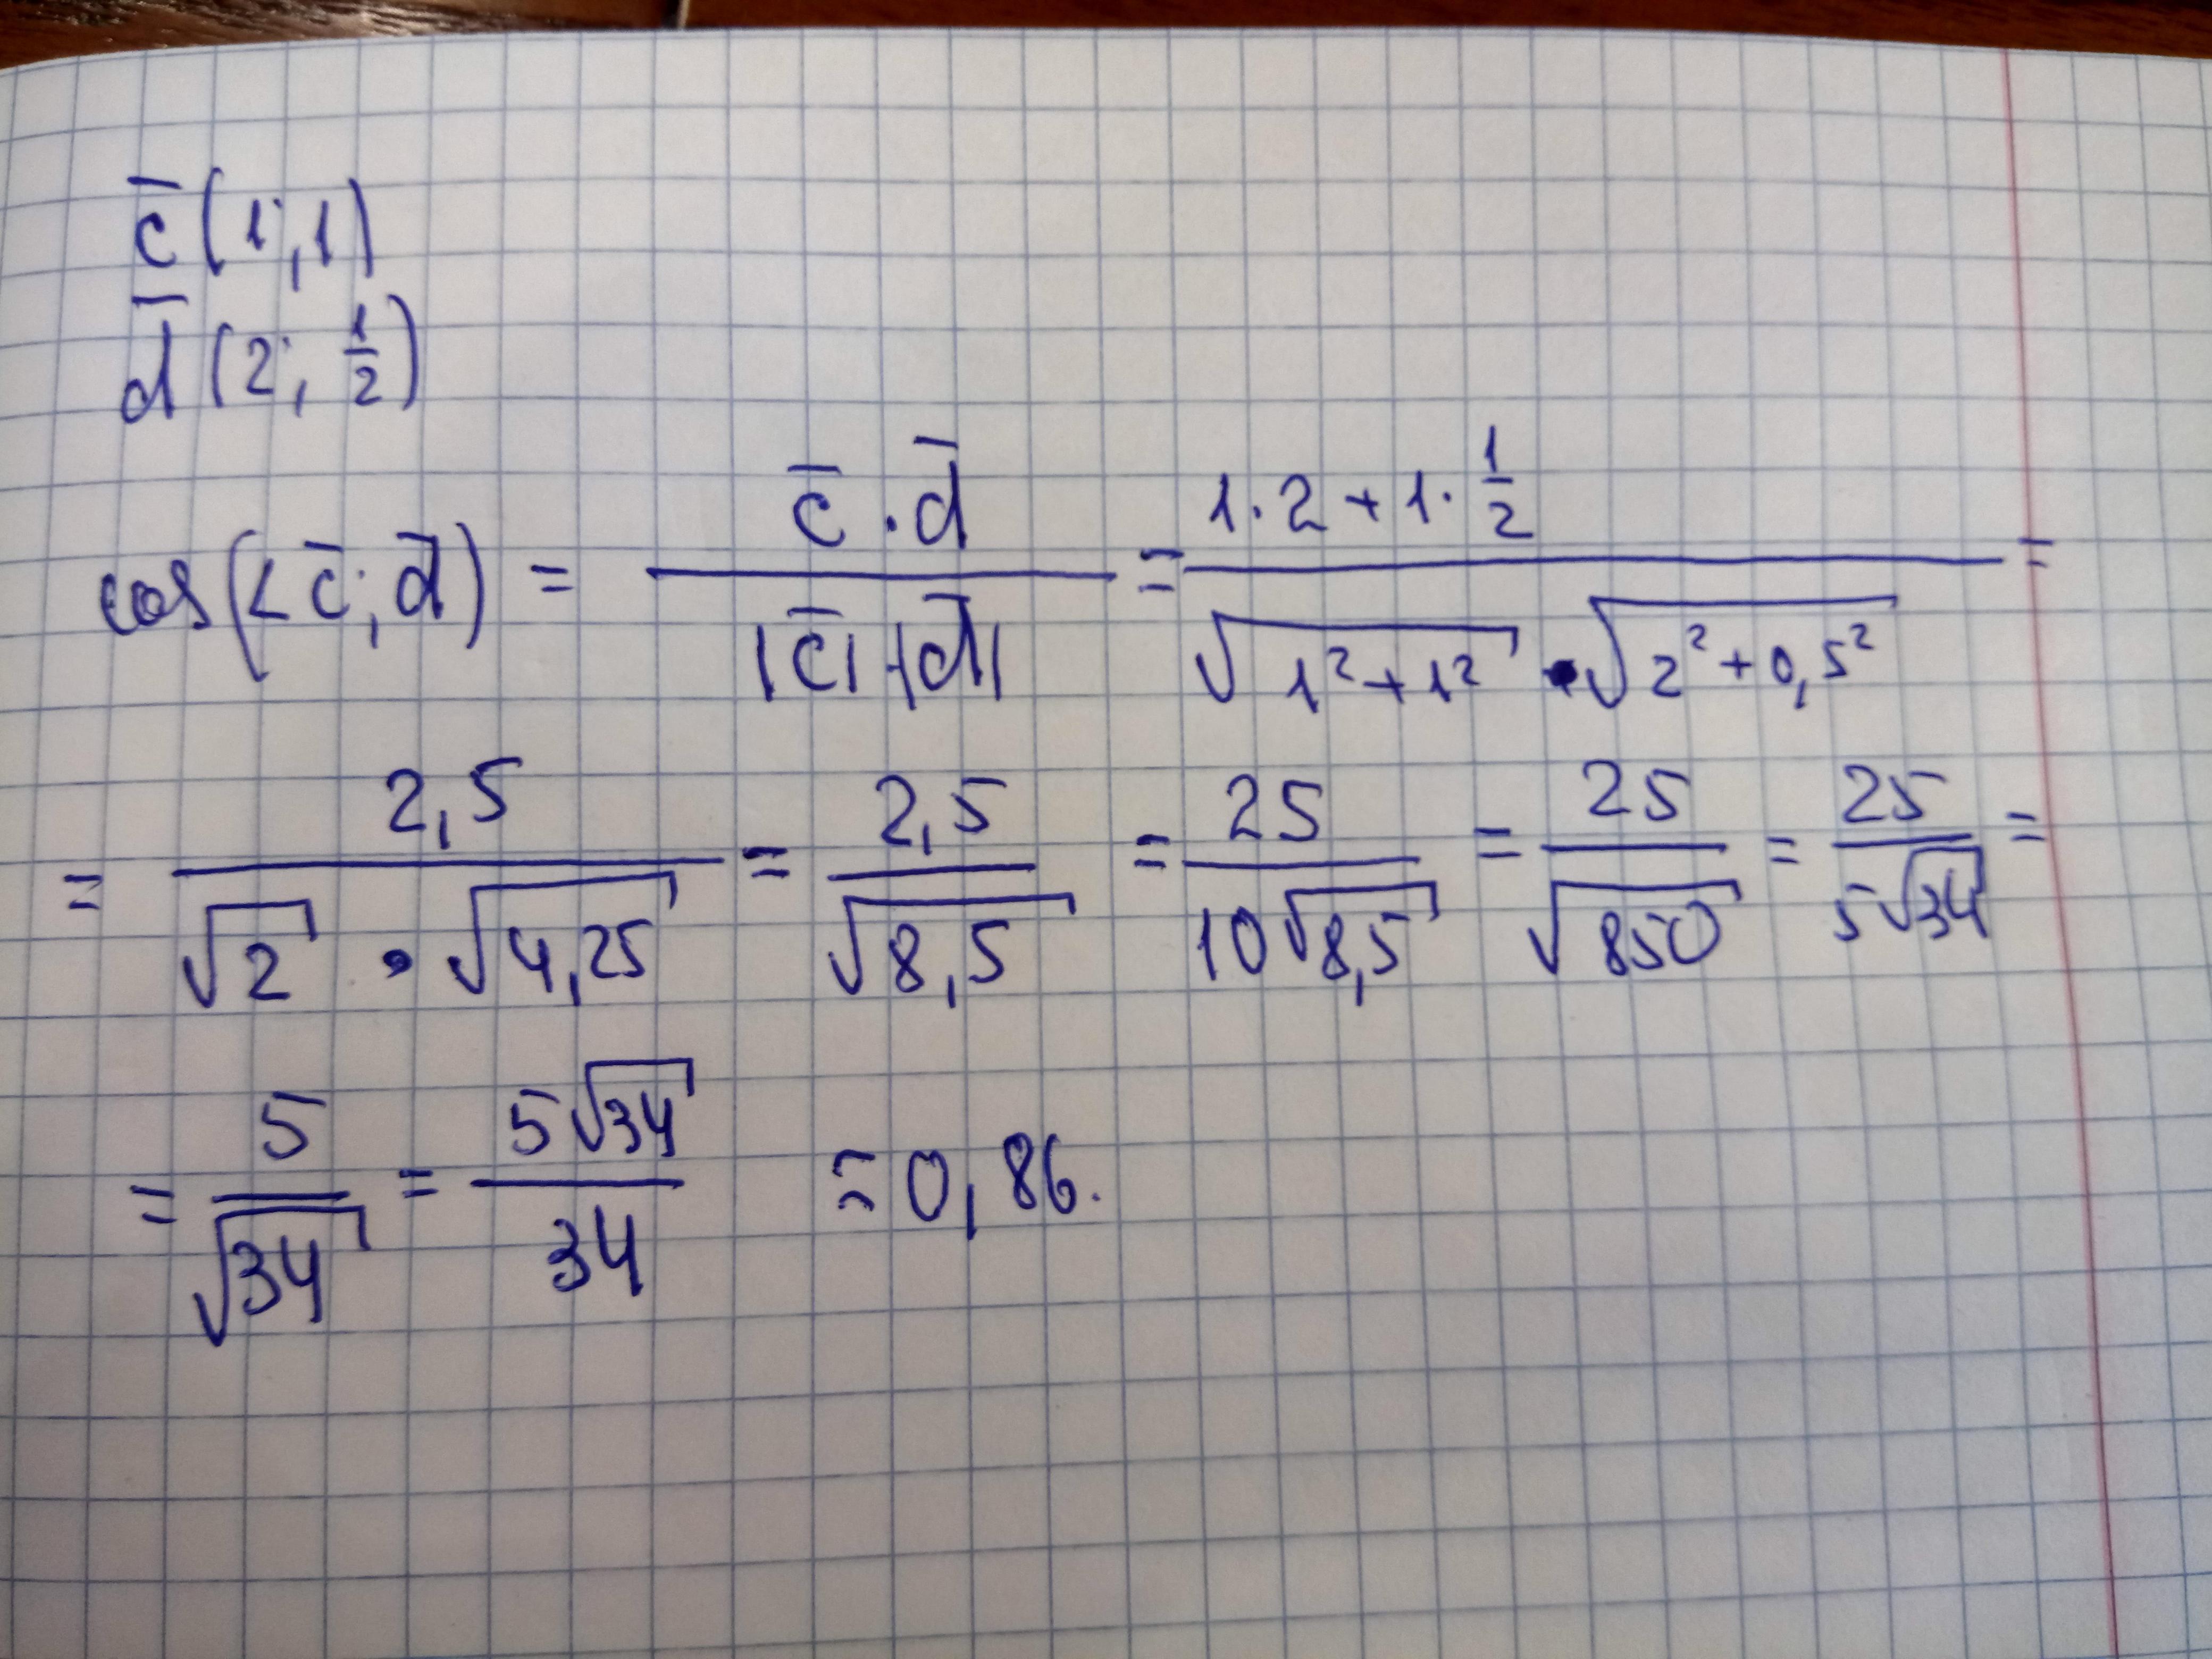 c̅ (1; 1)
d̅ (2; 1/2)
cos(∠ c̅; d̅) = (c̅ · d̅)/(|c̅| · |d̅|) = (1·2 + 1·1/2)/(√(1² + 1²) · √(2² + 0,5²)) =
= 2,5/(√2 · √4,25) = 2,5/√8,5 = 25/(10√8,5) = 25/√850 = 25/(5√34) =
= 5/√34 = 5√34/34 ≈ 0,86.